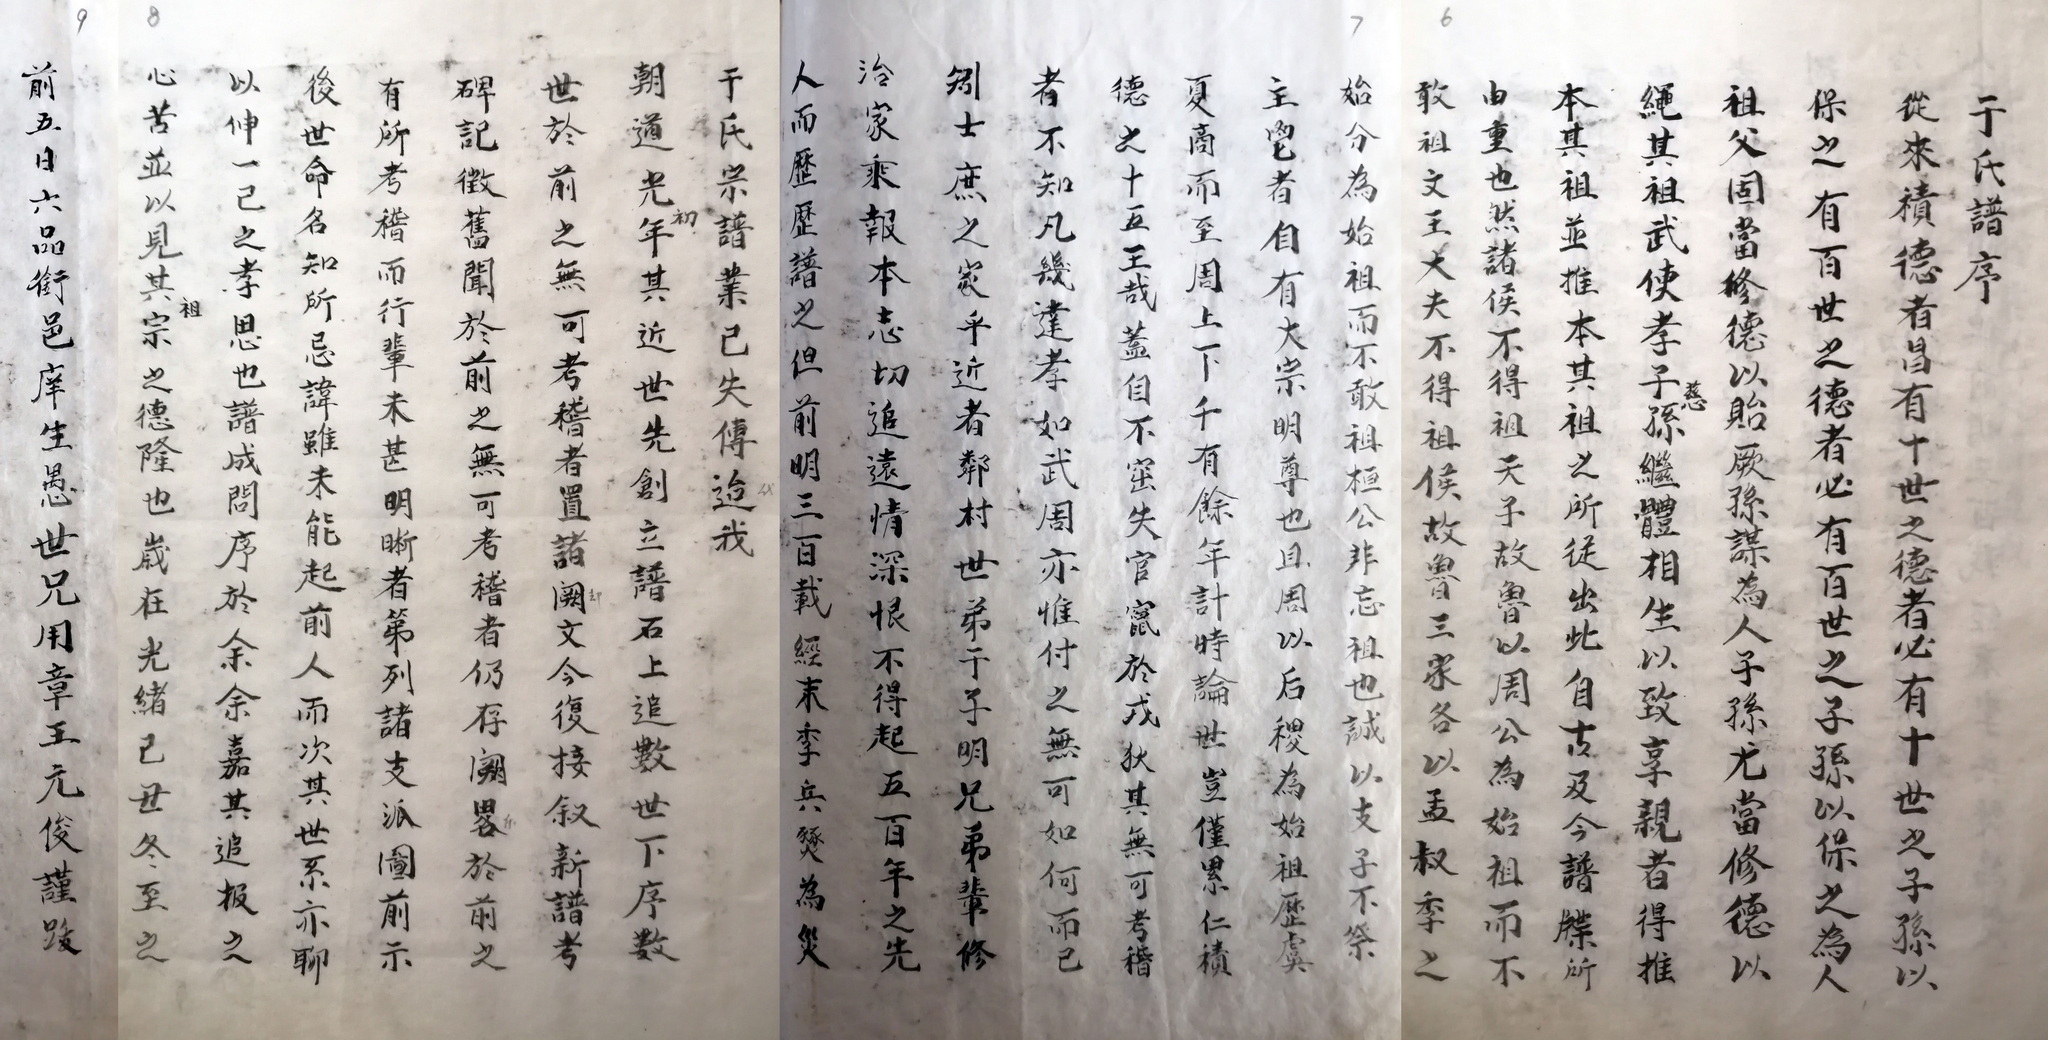 6
于氏譜序
從來積德者昌有十世之德者必有十世之子孫以
保之有百世之德者必有百世之子孫以保之為人
祖父固當修德以貽厥孫謀為人子孫尤當修德以
繩其祖武使孝子慈孫繼體相生以致享親者得推
本其祖並推本其祖之所從出此自古及今譜牒所
由重也然諸侯不得祖天子故魯以周公為始祖而不
敢祖文王大夫不得祖侯故魯三家各以孟叔季之
7
始分為始祖而不敢祖桓公非忘祖也誠以支子不祭
主鬯者自有大宗明尊也且周以后稷為始祖歷虞
夏商而至周上下千有餘年計時論世豈僅累仁積
德之十五王哉蓋自不窋失官竄於戎狄其無可考稽
者不知凡幾達孝如武周亦惟付之無可如何而已
矧士庶之家乎近者鄰村世弟于子明兄弟輩修
治家乘報本志切追遠情深恨不得起五百年之先
人而歷歷譜之但前明三百載經末季兵燹為災
于氏宗譜業已失傳迨我
朝道光年初其近世先創立譜石上追數世下序數
世於前之無可考稽者置諸闕文今復接叙新譜考
碑記徵舊聞於前之無可考稽者仍存闕畧於前之
有所考稽而行輩未甚明晰者第列諸支派圖前示
後世命名知所忌諱雖未能起前人而次其世系亦聊
以伸一己之孝思也譜成問序於余余嘉其追报之
8
心苦並以見其宗祖之德隆也歲在光緒己丑冬至之
9
前五日六品銜邑庠生愚世兄用章王元俊謹跋